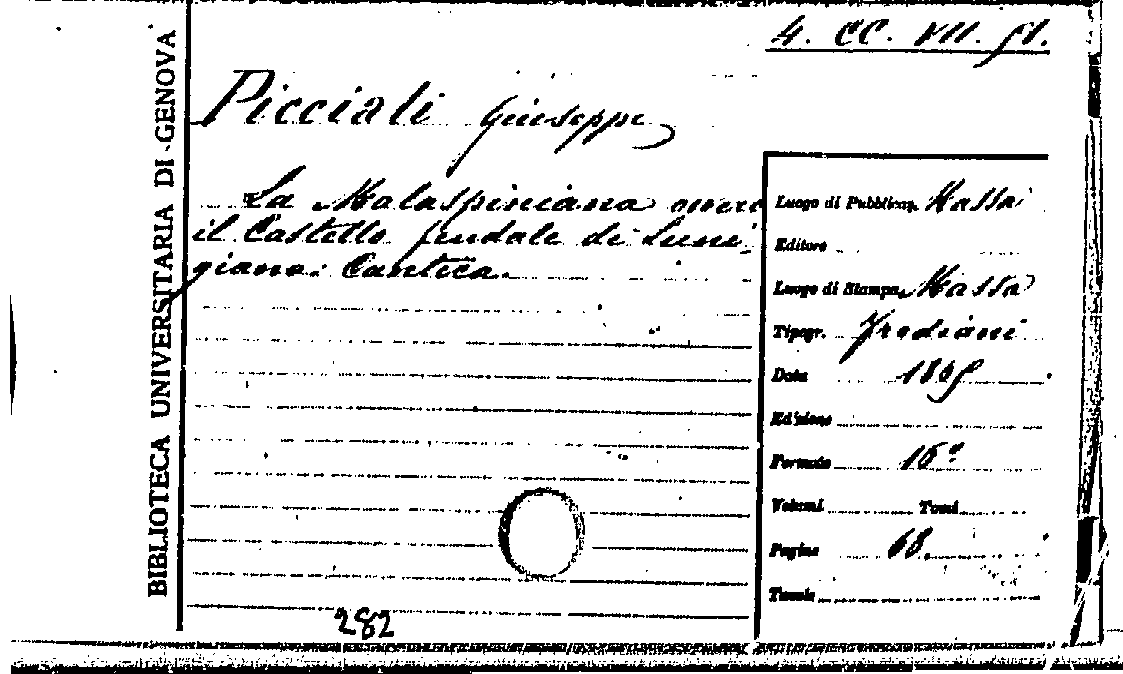 4. CC. VII. 51.
BIBLIOTECA UNIVERSITARIA DI GENOVA
Picciati Giuseppe
La Malaspiniana ovvero
il Castello feudale di Luni-
giana: Cantica.
Luogo di Pubblicaz. Massa
Editore
Luogo di Stampa Massa
Tipogr. Frediani
Data
Edizione
Formato 16º
Volumi Tomi
Pagine 68.
Tavole
282